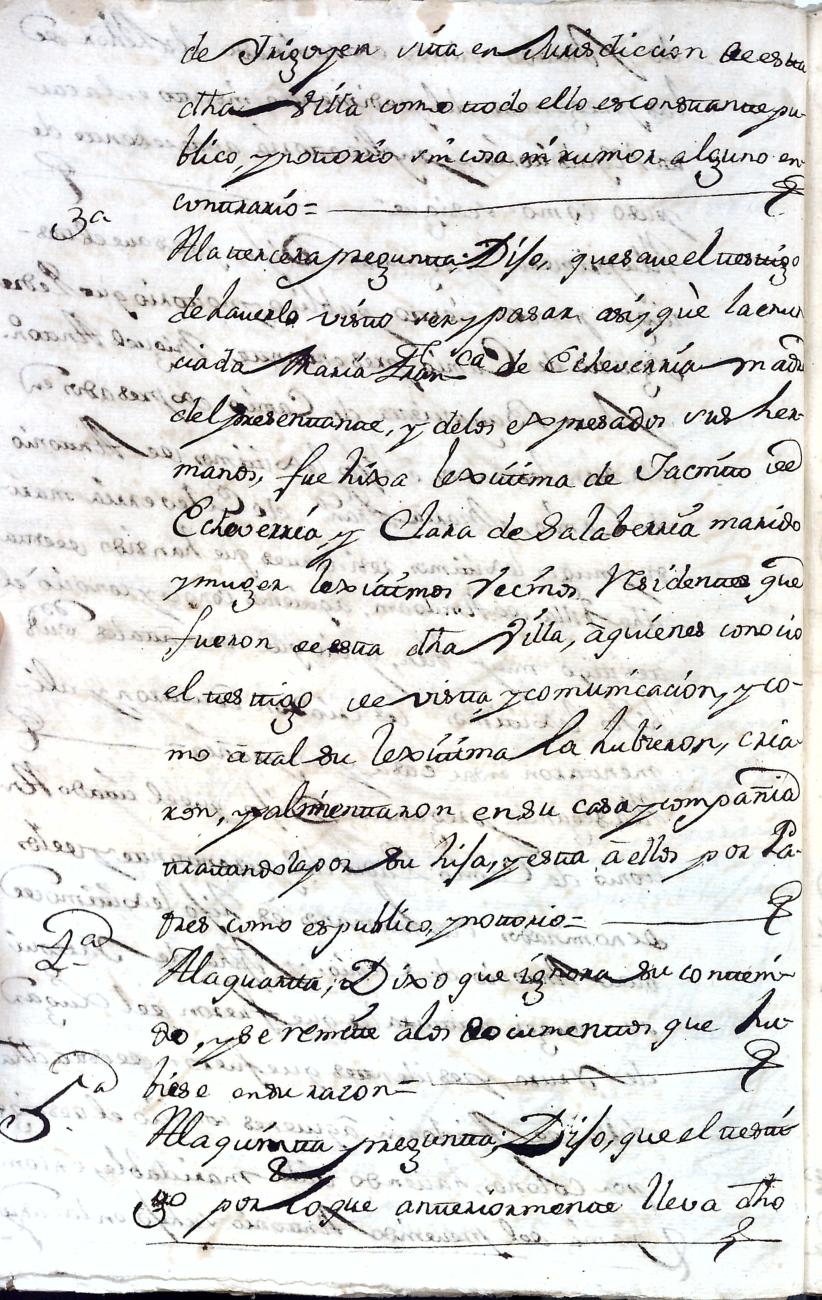 de Irigoyen sitta en Jurisdiccion de estta
dha Villa como ttodo ello es constante pu-
blico, y nottorio sin cosa ni rumor alguno en
conttrario =
3a
A la ttercera preguntta, Dijo, que save el ttesttigo
de haverlo vistto ser y pasar asi, què la enun
ciada Maria Franca de Echeverria madre
del presenttante, y de los expresados sus her-
manos, fue hixa lexittima de Jacintto de
Echeverria, y Clara de Salaberria marido
y muger lexittimos vecinos Residenttes que
fueron de estta dha Villa, à quienes conocio
el ttesttigo de vistta y comunicacion, y co-
mo à ttal su lexittima la hubieron, cria-
ron, y alimenttaron en su casa y compañia
ttrattandola por su hija, y estta à ellos por Pa-
dres como es publico, y nottorio =
4a
A la quartta, Dixo que ignora su conttení-
do, y se remitte à los documenttos que hu-
biese en su razon =
5a
A la quintta preguntta, Dijo, que el ttestti
go por lo que antteriormente lleva dho